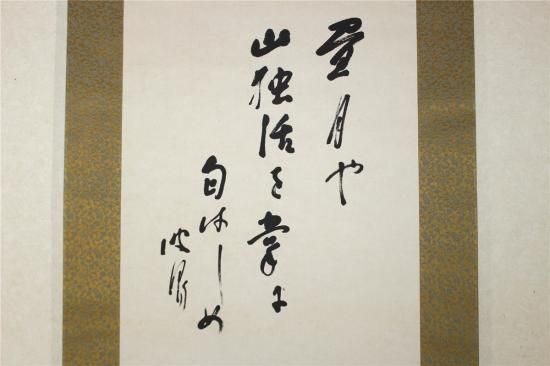 昼月や
山独活を掌に
匂はしめ
波郷